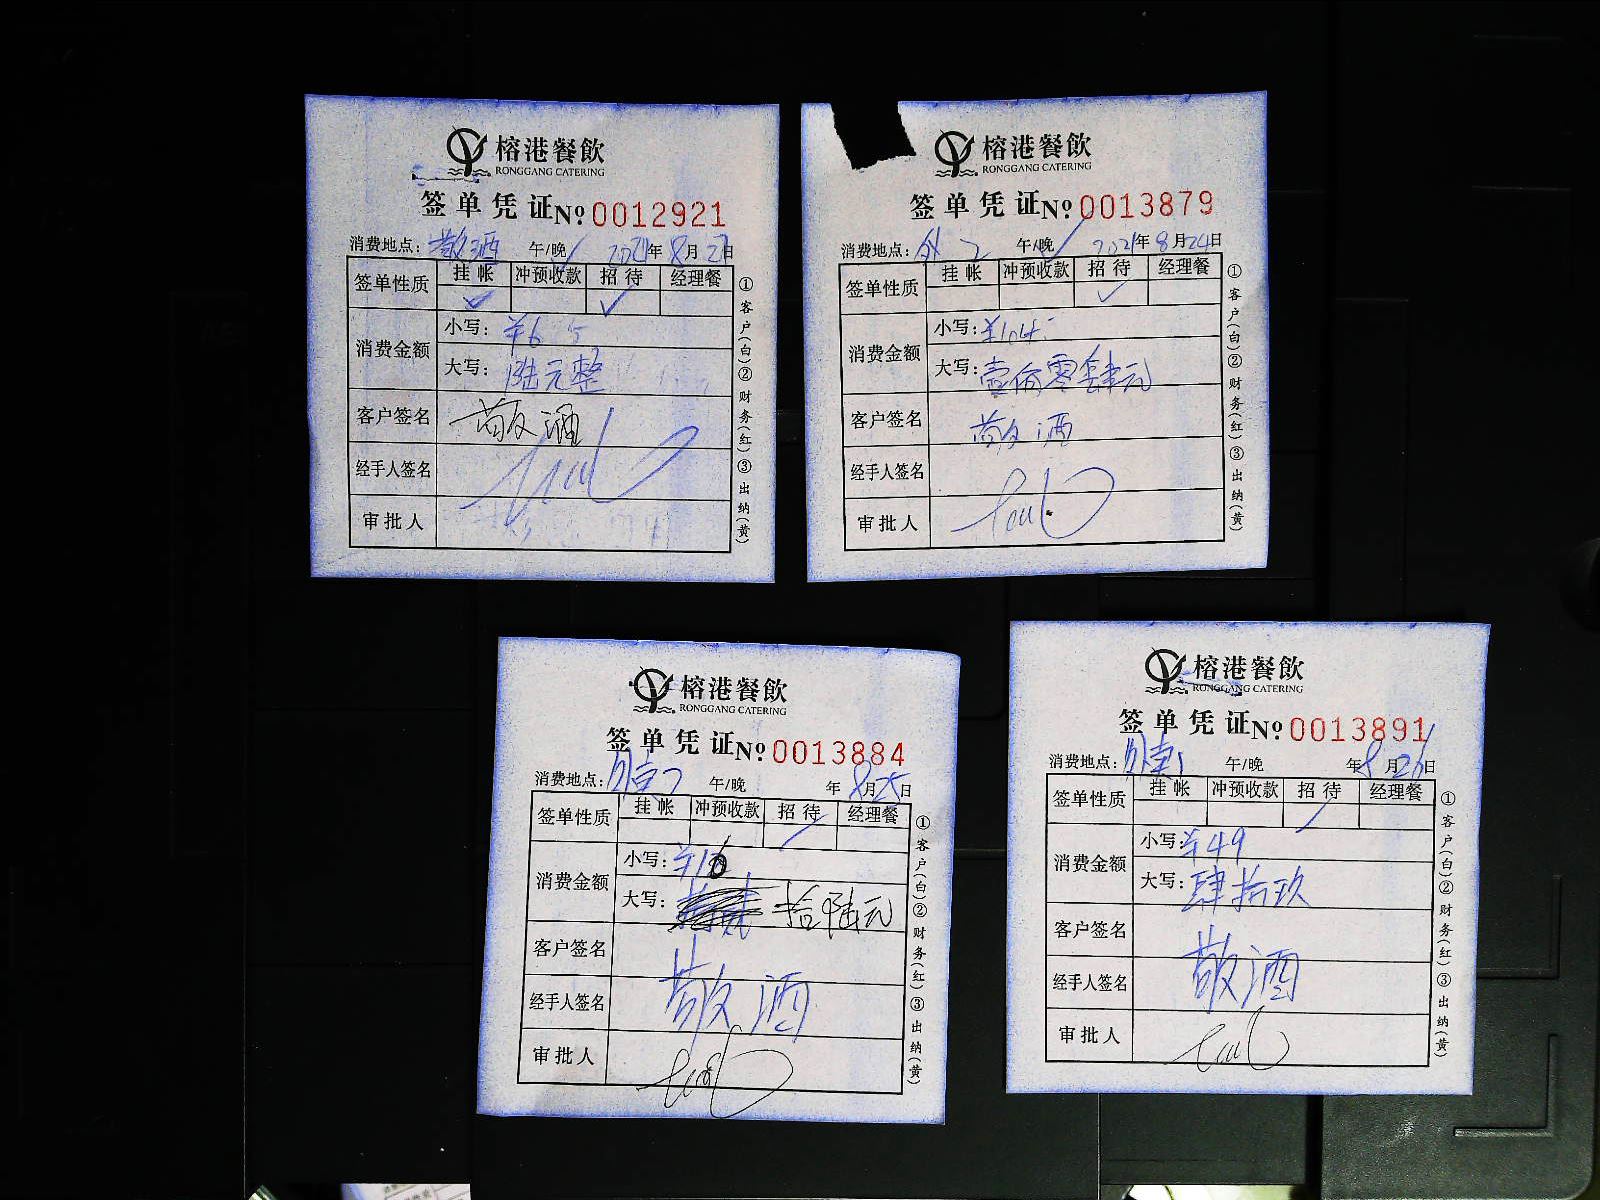 榕港餐飲
RONGGANG CATERING
签单凭证№ 0012921
消费地点: 敬酒 午/晚 2021年8月27日
签单性质 挂帐 冲预收款 招待 经理餐
✓ ✓
消费金额 小写: ¥6
大写: 陆元整
客户签名 敬酒
经手人签名
审批人
①客户(白)②财务(红)③出纳(黄)
榕港餐飲
RONGGANG CATERING
签单凭证№ 0013879
消费地点: 外2 午/晚 2021年8月24日
签单性质 挂帐 冲预收款 招待 经理餐
✓
消费金额 小写: ¥104
大写: 壹佰零肆元
客户签名 敬酒
经手人签名
审批人
①客户(白)②财务(红)③出纳(黄)
榕港餐飲
RONGGANG CATERING
签单凭证№ 0013884
消费地点: 午/晚 年8月25日
签单性质 挂帐 冲预收款 招待 经理餐
消费金额 小写: ¥16
大写: 拾陆元
客户签名
经手人签名 敬酒
审批人
①客户(白)②财务(红)③出纳(黄)
榕港餐飲
RONGGANG CATERING
签单凭证№ 0013891
消费地点: 午/晚 年8月26日
签单性质 挂帐 冲预收款 招待 经理餐
消费金额 小写: ¥49
大写: 肆拾玖
客户签名
经手人签名 敬酒
审批人
①客户(白)②财务(红)③出纳(黄)